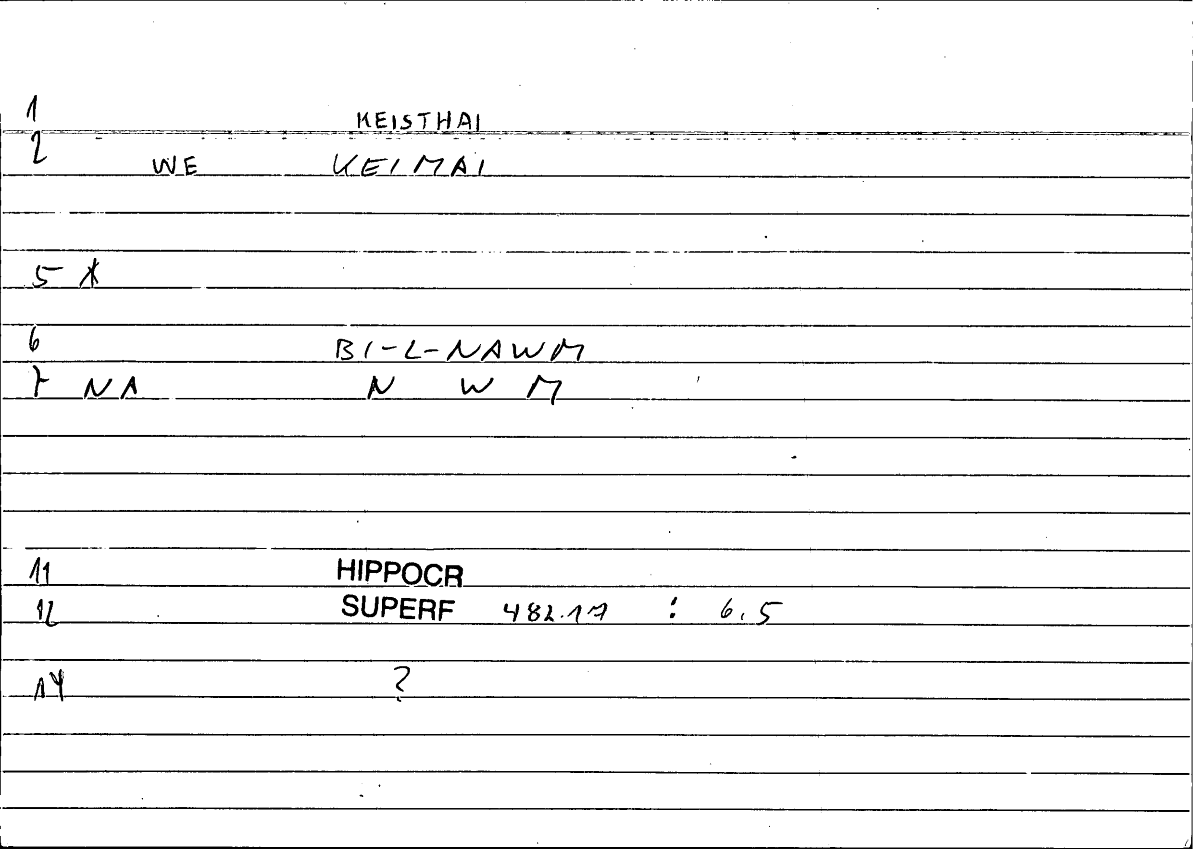 1 KEISTHAI
2 WE KEIMAI
5 *
6 BI-L-NAWM
7 NA N W M
11 HIPPOCR
12 SUPERF 482.17 : 6.5
14 ?